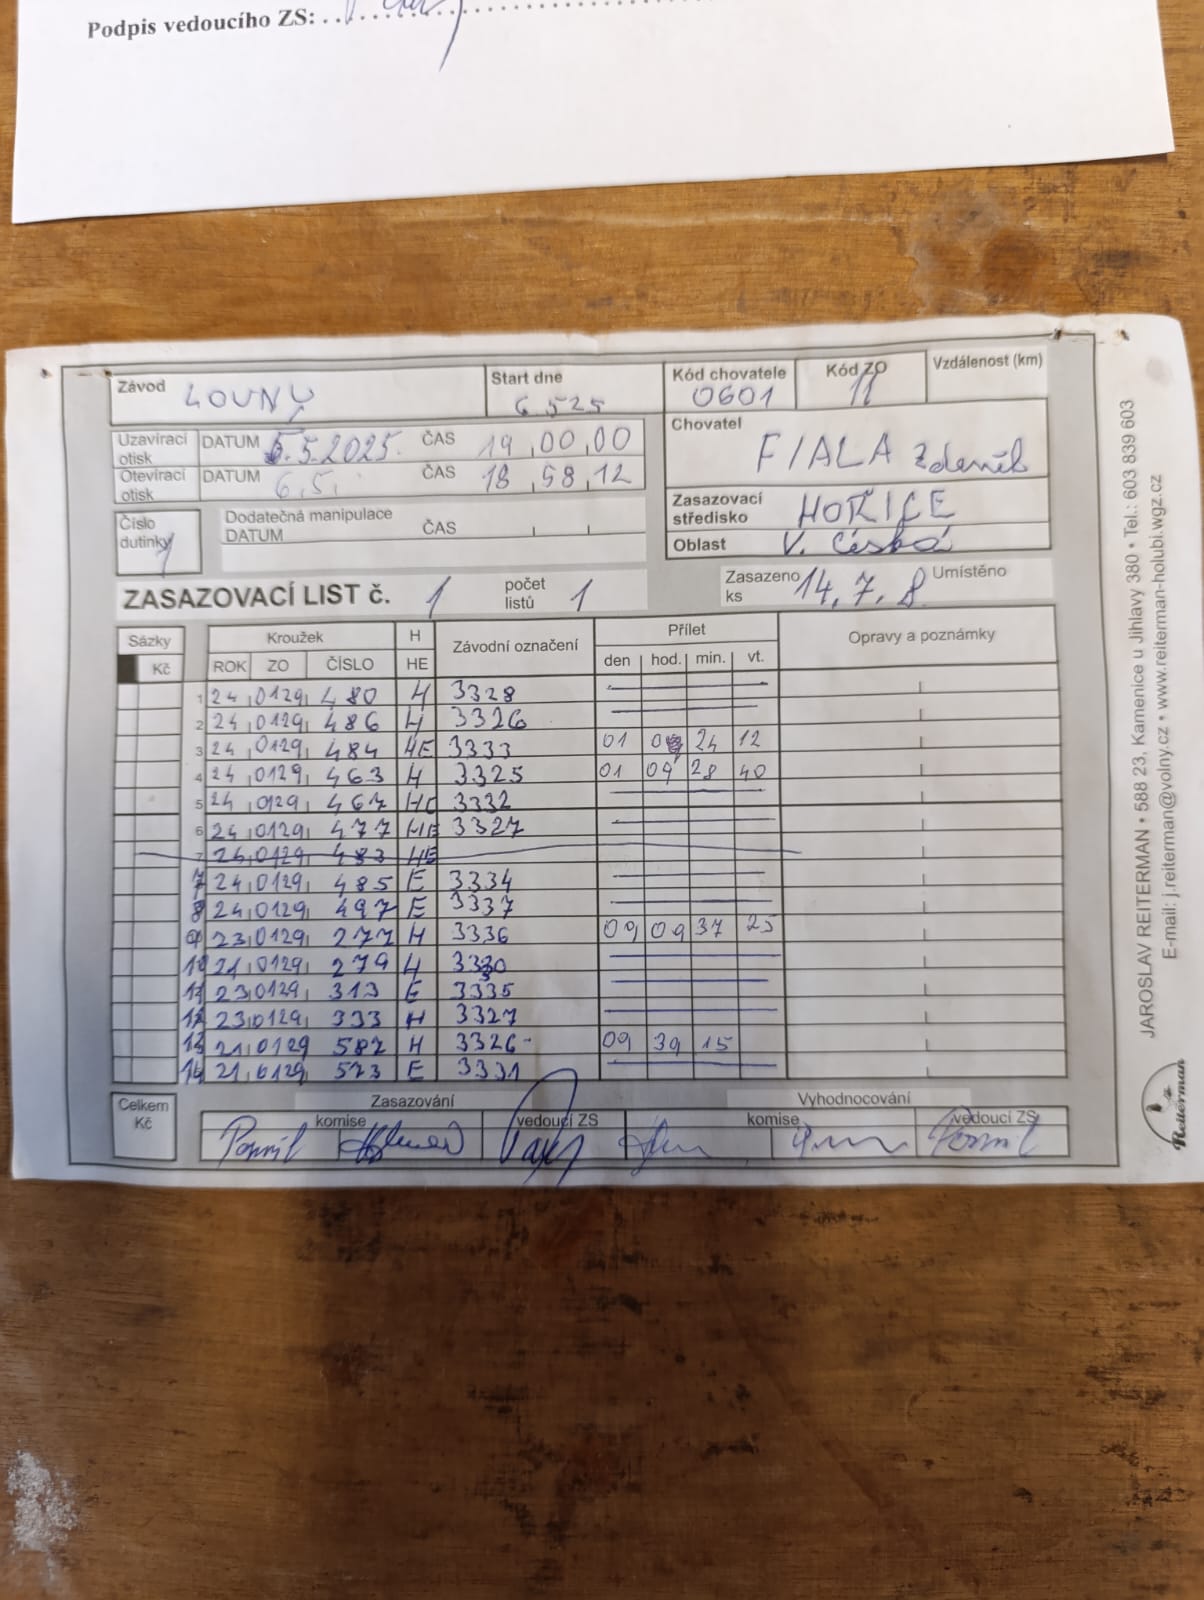 Podpis vedoucího ZS:
Závod LOUNY
Start dne 6.5.25
Kód chovatele 0601
Kód ZO 11
Vzdálenost (km)
Uzavírací otisk DATUM 5.5.2025. ČAS 19,00,00
Otevírací otisk DATUM 6.5. ČAS 18,58,12
Chovatel FIALA Zdeněk
Číslo dutinky 1
Dodatečná manipulace DATUM ČAS
Zasazovací středisko HOŘICE
Oblast V. Česká
ZASAZOVACÍ LIST č. 1 počet listů 1
Zasazeno ks 14.7.8 Umístěno
Sázky Kč Kroužek H HE Závodní označení Přílet Opravy a poznámky
ROK ZO ČÍSLO den hod. min. vt.
1 24 0129 480 H 3328
2 24 0129 486 H 3326
3 24 0129 484 HE 3333 01 24 12
4 24 0129 463 H 3325 01 09 28 40
5 24 0129 467 3332
6 24 0129 477 HE 3327
7 0129 483 HE
7 24 0129 485 E 3334
8 24 0129 497 E 3337
9 23 0129 277 H 3336 09 09 37 25
10 21 0129 279 H 3330
11 23 0129 313 E 3335
12 23 0129 333 H 3327
13 21 0129 587 H 3326 09 39 15
14 21 0129 573 E 3331
Celkem Kč Zasazování Vyhodnocování
komise vedoucí ZS komise vedoucí ZS
JAROSLAV REITERMAN • 588 23, Kamenice u Jihlavy 380 • Tel.: 603 839 603
E-mail: j.reiterman@volny.cz • www.reiterman-holubi.wgz.cz
Reiterman